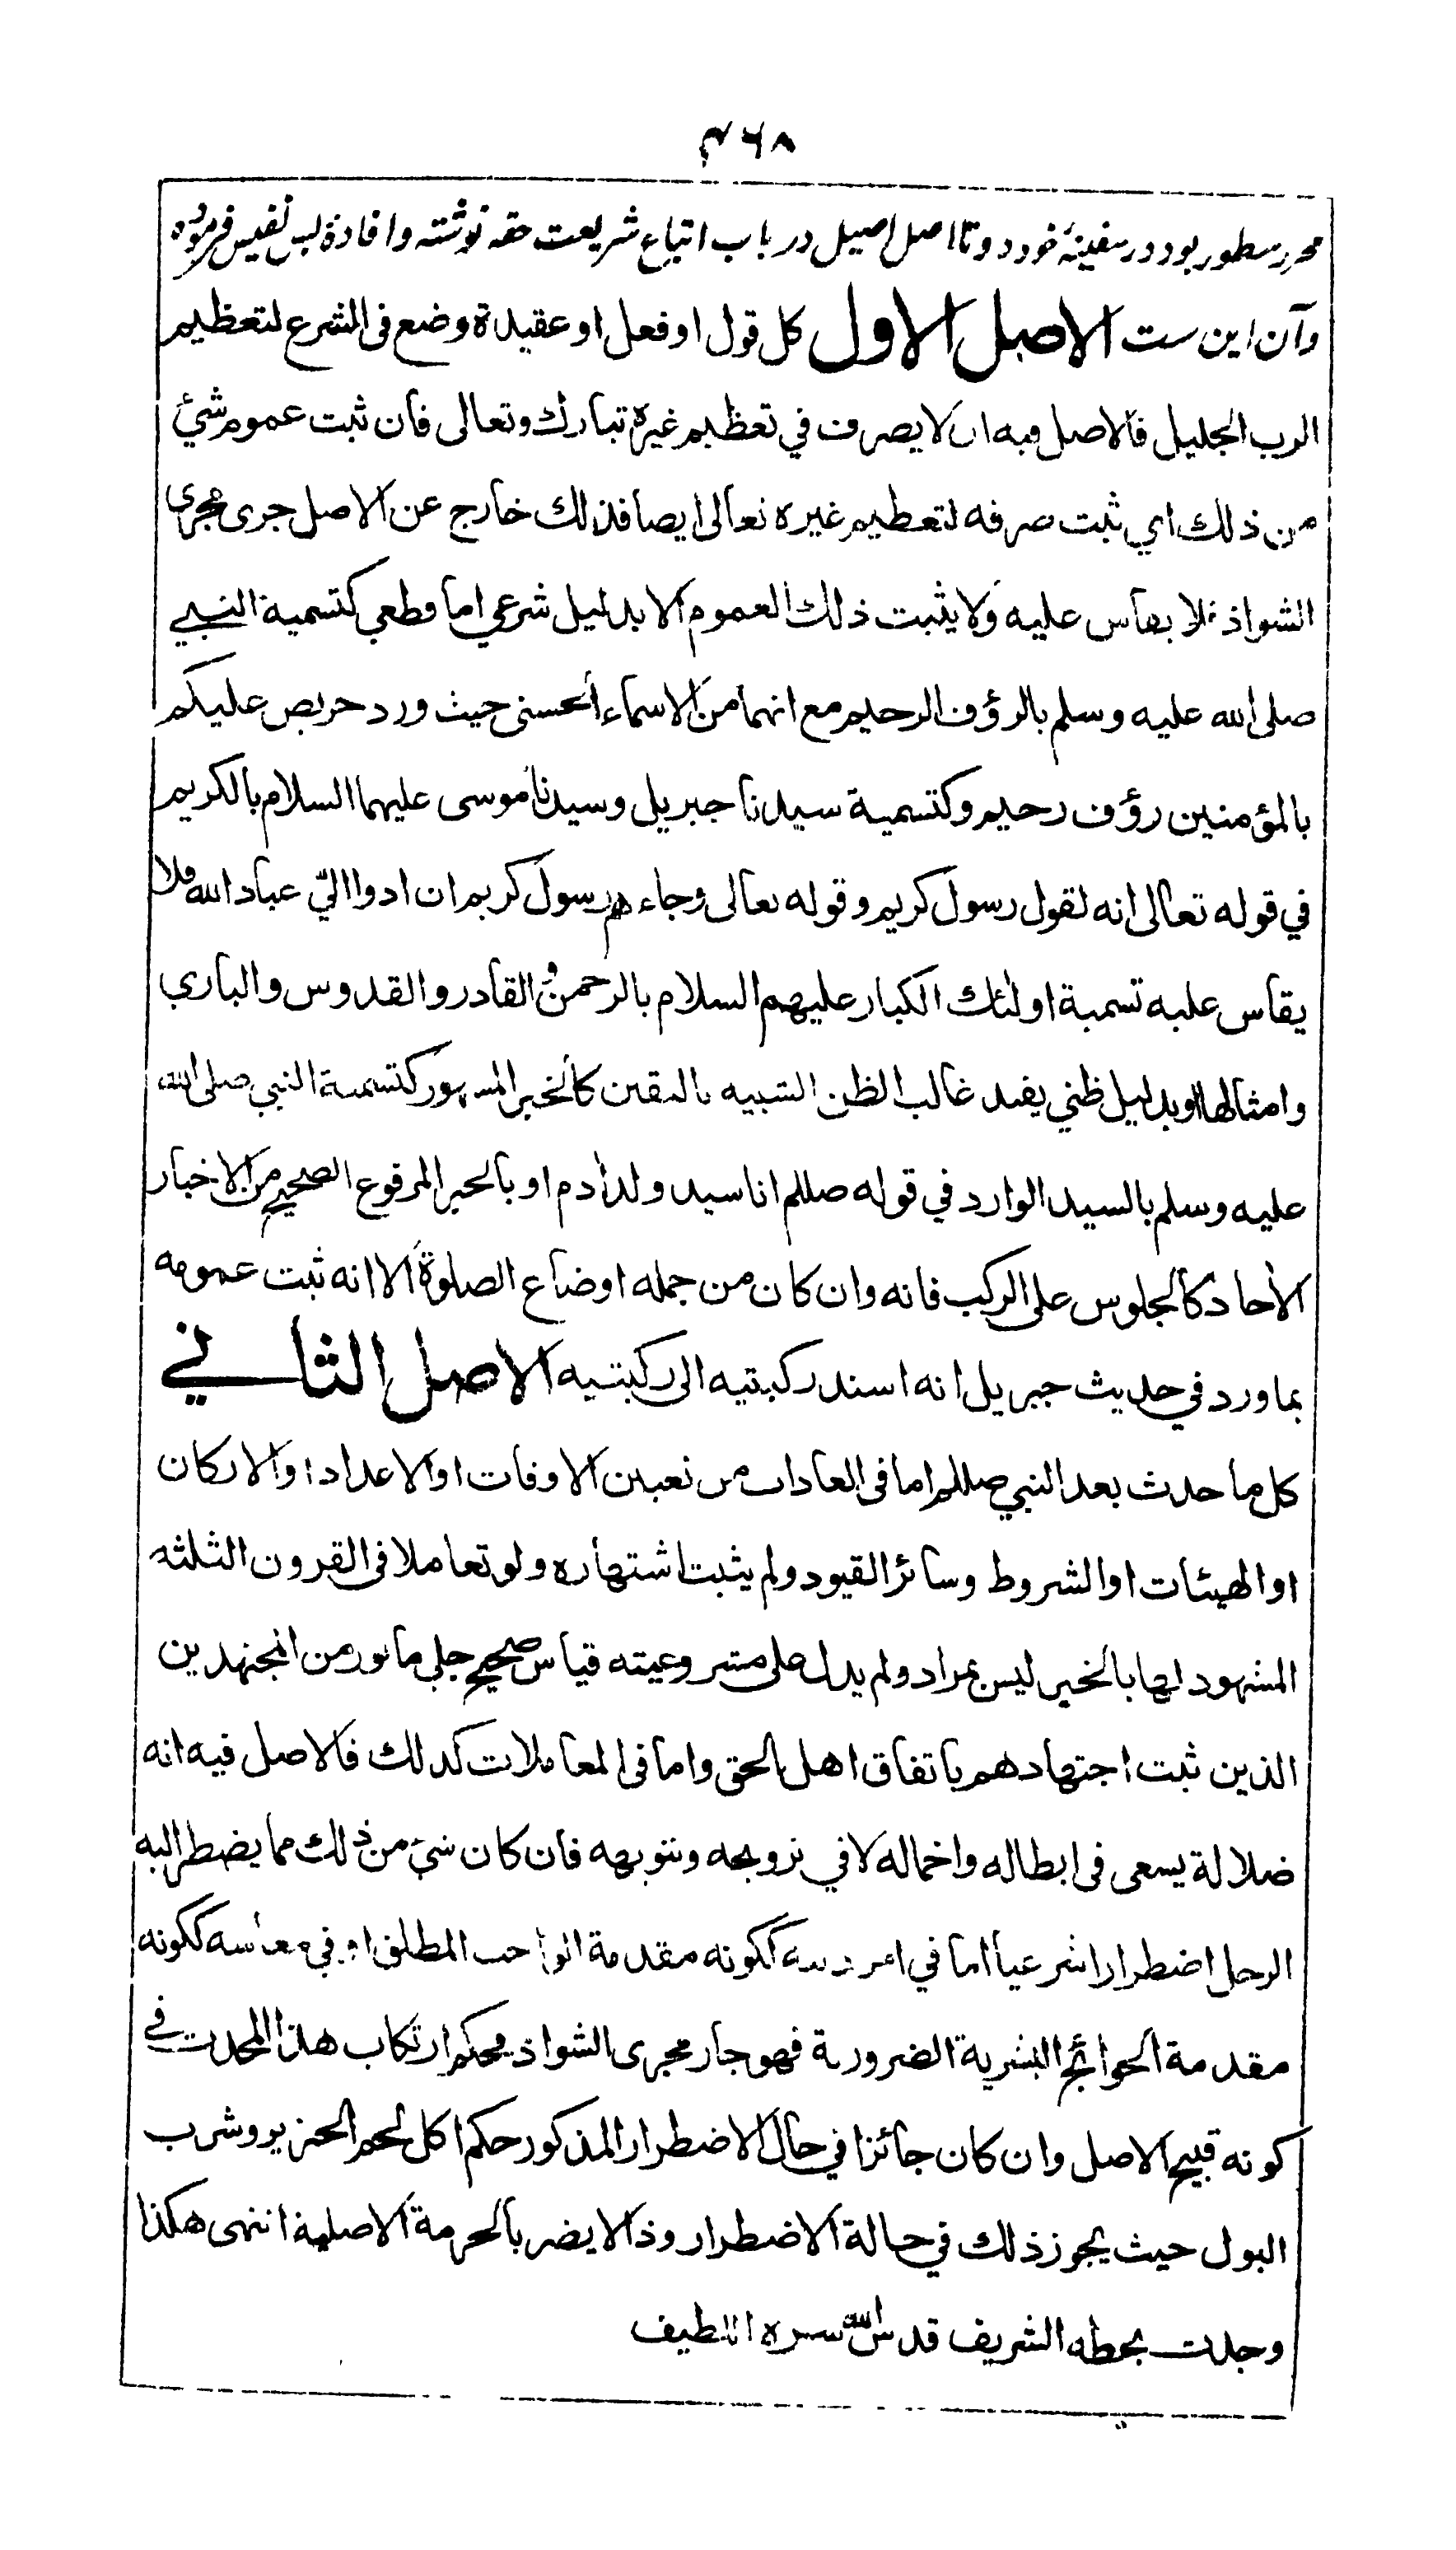 ۴۶۸
محرر سطور بود در سفینۂ خود دو تا اصل اصیل در باب اتباع شریعت حقه نوشته و افادۀ لبس نفیس فرموده
وآن این ست الاصل الاول کل قول او فعل او عقیدة وضع فی الشرع لتعظیم
الرب الجلیل فالاصل فیه ان لا یصرف في تعظیم غیره تبارك وتعالی فان ثبت عموم شيء
من ذلك اي ثبت صرفه لتعظیم غیره تعالی ایضا فذلك خارج عن الاصل جری مجری
الشواذ فلا یقاس علیه ولا یثبت ذلك العموم الا بدلیل شرعي اما قطعي كتسمیة النبي
صلی الله علیه وسلم بالرؤف الرحیم مع انهما من الاسماء الحسنی حیث ورد حریص علیکم
بالمؤمنین رؤف رحیم وکتسمیة سیدنا جبریل وسیدنا موسی علیهما السلام بالکریم
في قوله تعالی انه لقول رسول کریم وقوله تعالی وجاءهم رسول کریم ان ادوا اليّ عباد الله فلا
یقاس علیه تسمیة اولئك الکبار علیهم السلام بالرحمن والقادر والقدوس والباري
وامثالها او بدلیل ظني یفید غالب الظن الشبیه بالیقین کالخبر المشهور کتسمیة النبي صلی الله
علیه وسلم بالسید الوارد في قوله صللم انا سید ولد أدم او بالخبر المرفوع الصحیح من الاخبار
الأحاد کالجلوس علی الرکب فانه وان کان من جمله اوضاع الصلوة الا انه ثبت عمومه
بما ورد في حدیث جبریل انه اسند رکبتیه الی رکبتیه الاصل الثاني
کل ما حدث بعد النبي صللم اما فی العادات من تعیین الاوقات او الاعداد او الارکان
او الهیئات او الشروط وسائر القیود ولم یثبت اشتهاره ولو تعاملا فی القرون الثلثه
المشهود لها بالخیر لیس بمراد ولم یدل علی مشروعیته قیاس صحیح جلي ماثور من المجتهدین
الذین ثبت اجتهادهم باتفاق اهل الحق واما فی المعاملات کذلك فالاصل فیه انه
ضلالة یسعی فی ابطاله واخماله لا في ترویجه وتنویهه فان کان شيء من ذلك مما یضطر الیه
الرجل اضطرارا شرعیا اما في امر دینه ککونه مقدمة الواجب المطلق او في معاشه ککونه
مقدمة الحوائج البشریة الضروریة فهو جار مجری الشواذ فحکم ارتکاب هذا المحدث في
کونه قبیح الاصل وان کان جائزا في حال الاضطرار المذکور حکم اکل لحم الخنزیر وشرب
البول حیث یجوز ذلك في حالة الاضطرار وذا لا یضر بالحرمة الاصلیة انتهی هکذا
وجدت بخطه الشریف قدس الله سره اللطیف